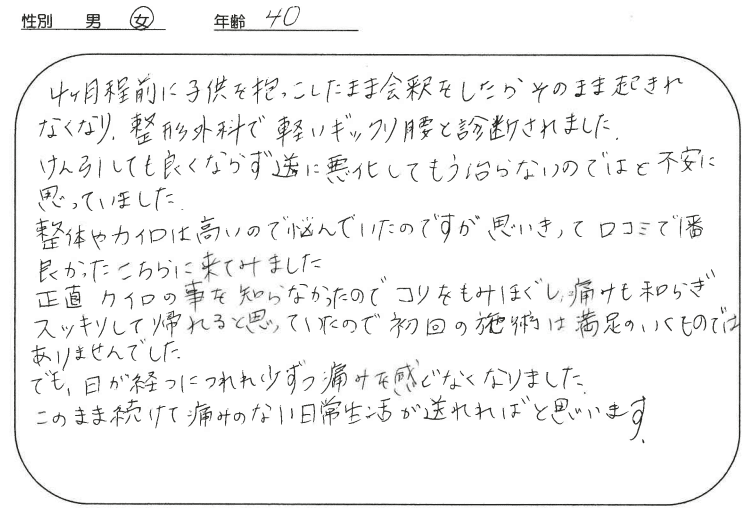 性別 男 女 年齢 40
4ヶ月程前に子供を抱っこしたまま会釈をしたらそのまま起きれ
なくなり、整形外科で軽いギックリ腰と診断されました。
けん引しても良くならず逆に悪化してもう治らないのではと不安に
思っていました。
整体やカイロは高いので悩んでいたのですが思いきって口コミで1番
良かったこちらに来てみました
正直 カイロの事を知らなかったので コリをもみほぐし、痛みも和らぎ
スッキリして帰れると思っていたので初回の施術は満足のいくものでは
ありませんでした。
でも、日が経つにつれ少ずつ痛みを感じなくなりました。
このまま続けて痛みのない日常生活が送れればと思います。